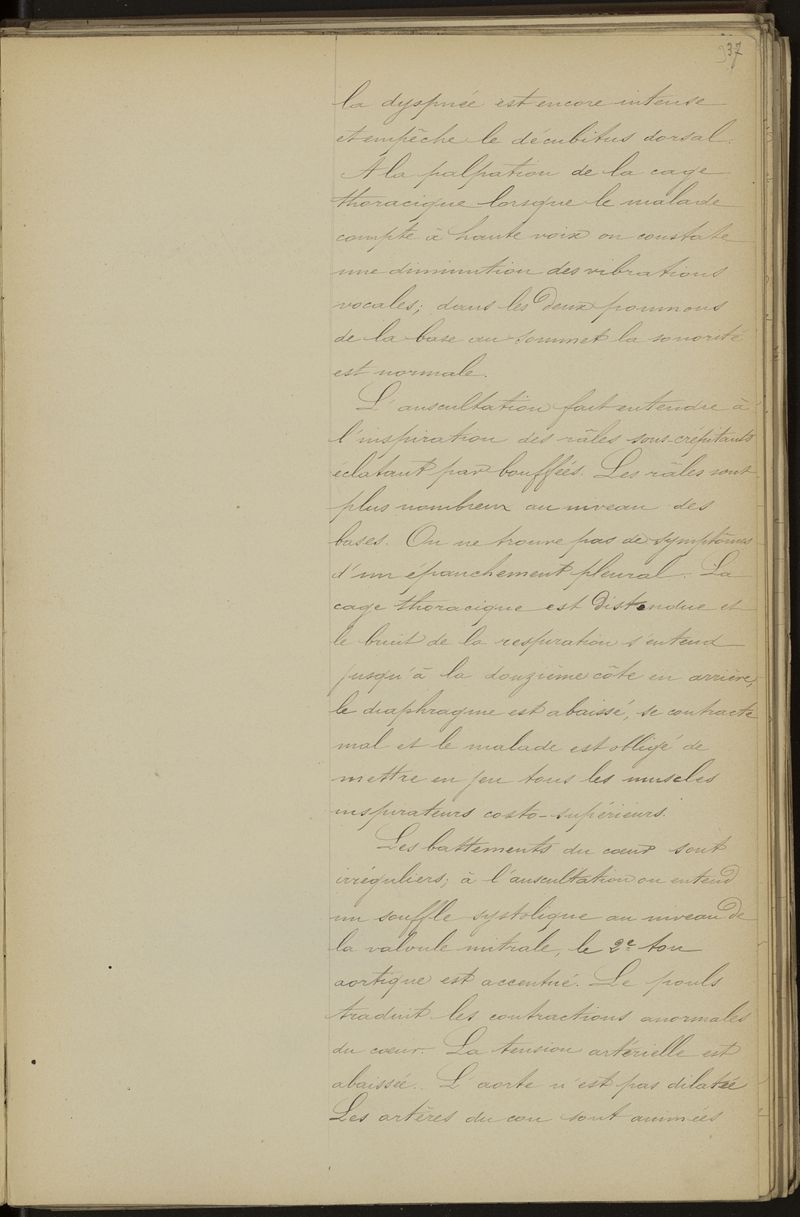 337
la dyspnée est encore intense
et empêche le décubitus dorsal.
A la palpation de la cage
thoracique lorsque le malade
compte à haute voix on constate
une diminution des vibrations
vocales; dans les deux poumons
de la base au sommet la sonorité
est normale.
L'auscultation fait entendre à
l'inspiration des râles sous-crépitants
éclatant par bouffées. Les râles sont
plus nombreux au niveau des
bases. On ne trouve pas de symptômes
d'un épanchement pleural. La
cage thoracique est distendue et
le bruit de la respiration s'entend
jusqu'à la douzième côte en arrière,
le diaphragme est abaissé, se contracte
mal et le malade est obligé de
mettre en jeu tous les muscles
inspirateurs costo-supérieurs.
Les battements du cœur sont
irréguliers; à l'auscultation on entend
un souffle systolique au niveau de
la valvule mitrale, le 2e ton
aortique est accentué. Le pouls
traduit les contractions anormales
du cœur. La tension artérielle est
abaissée. L'aorte n'est pas dilatée
Les artères du cou sont animées